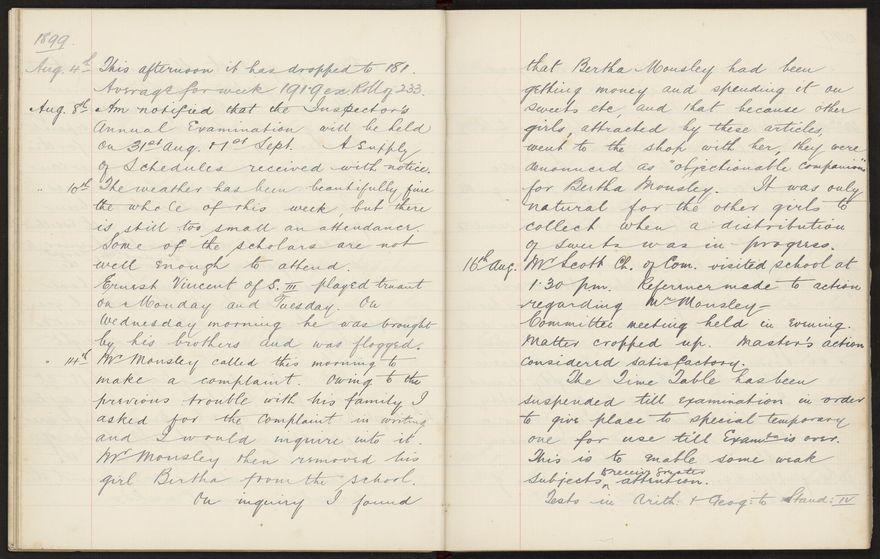 1899.
Aug. 4th This afternoon it has dropped to 181.
Average for week 191·9 ex Roll of 233.
Aug. 8th Am notified that the Inspector's
Annual Examination will be held
on 31st Aug. & 1st Sept. A supply
of Schedules received with notice.
" 10th The weather has been beautifully fine
the whole of this week, but there
is still too small an attendance.
Some of the scholars are not
well enough to attend.
Ernest Vincent of S. III played truant
on Monday and Tuesday. On
Wednesday morning he was brought
by his brothers and was flogged.
" 14th Mr Monsley called this morning to
make a complaint. Owing to the
previous trouble with his family I
asked for the complaint in writing
and I would inquire into it.
Mr Monsley then removed his
girl Bertha from the school.
On inquiry I found
that Bertha Monsley had been
getting money and spending it on
sweets etc, and that because other
girls, attracted by these articles,
went to the shop with her, they were
denounced as "objectionable companions"
for Bertha Monsley. It was only
natural for the other girls to
collect when a distribution
of sweets was in progress.
16th Aug. Mr Scott Ch. of Com. visited school at
1·30 pm. Reference made to action
regarding Mr Monsley—
Committee meeting held in evening.
Matter cropped up. Master's action
considered satisfactory.
The Time Table has been
suspended till examination in order
to give place to special temporary
one for use till Examtn is over.
This is to enable some weak
to receive greater
subjects ^ attention.
Tests in Arith: & Geog: to Stand: IV